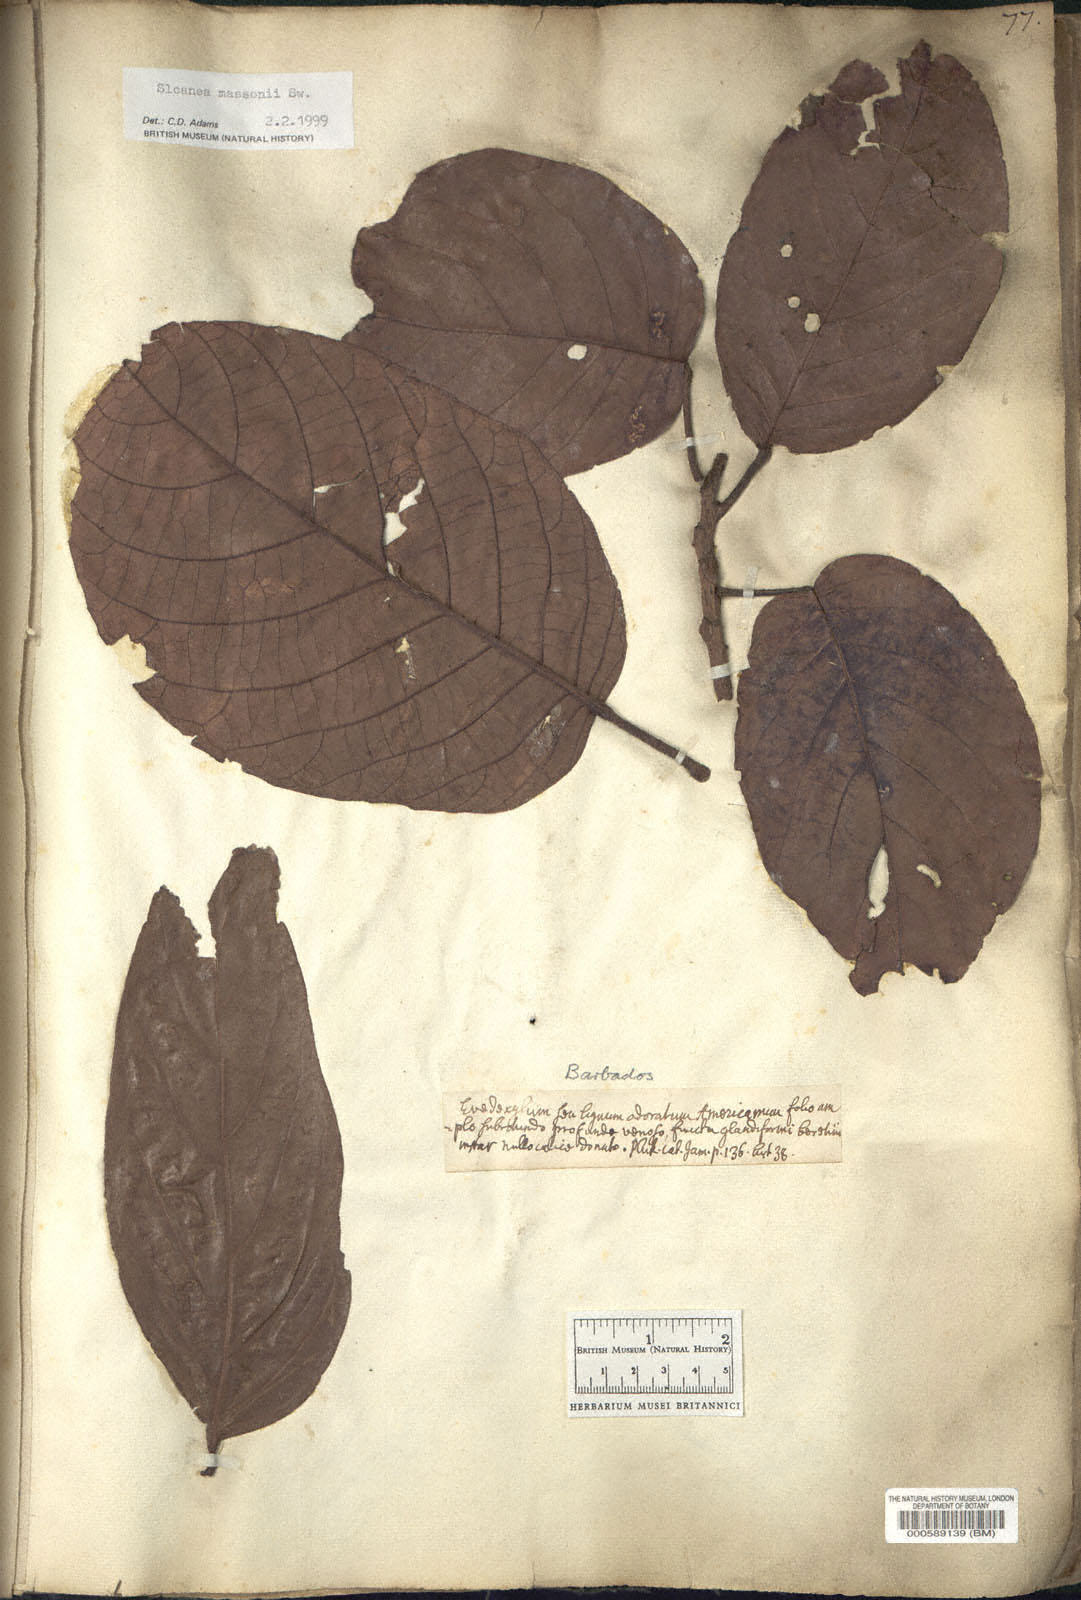 77.
Sloanea massonii Sw.
Det.: C.D. Adams 2.2.1999
BRITISH MUSEUM (NATURAL HISTORY)
Barbados
seu lignum odoratum Americanum folio am
plo subrotundo profunde venoso, fructu glandiformi
instar nullo calice donato. Pluk. cat. Jam. p. 136.
1 2
BRITISH MUSEUM (NATURAL HISTORY)
1 2 3 4 5
HERBARIUM MUSEI BRITANNICI
THE NATURAL HISTORY MUSEUM, LONDON
DEPARTMENT OF BOTANY
000589139 (BM)